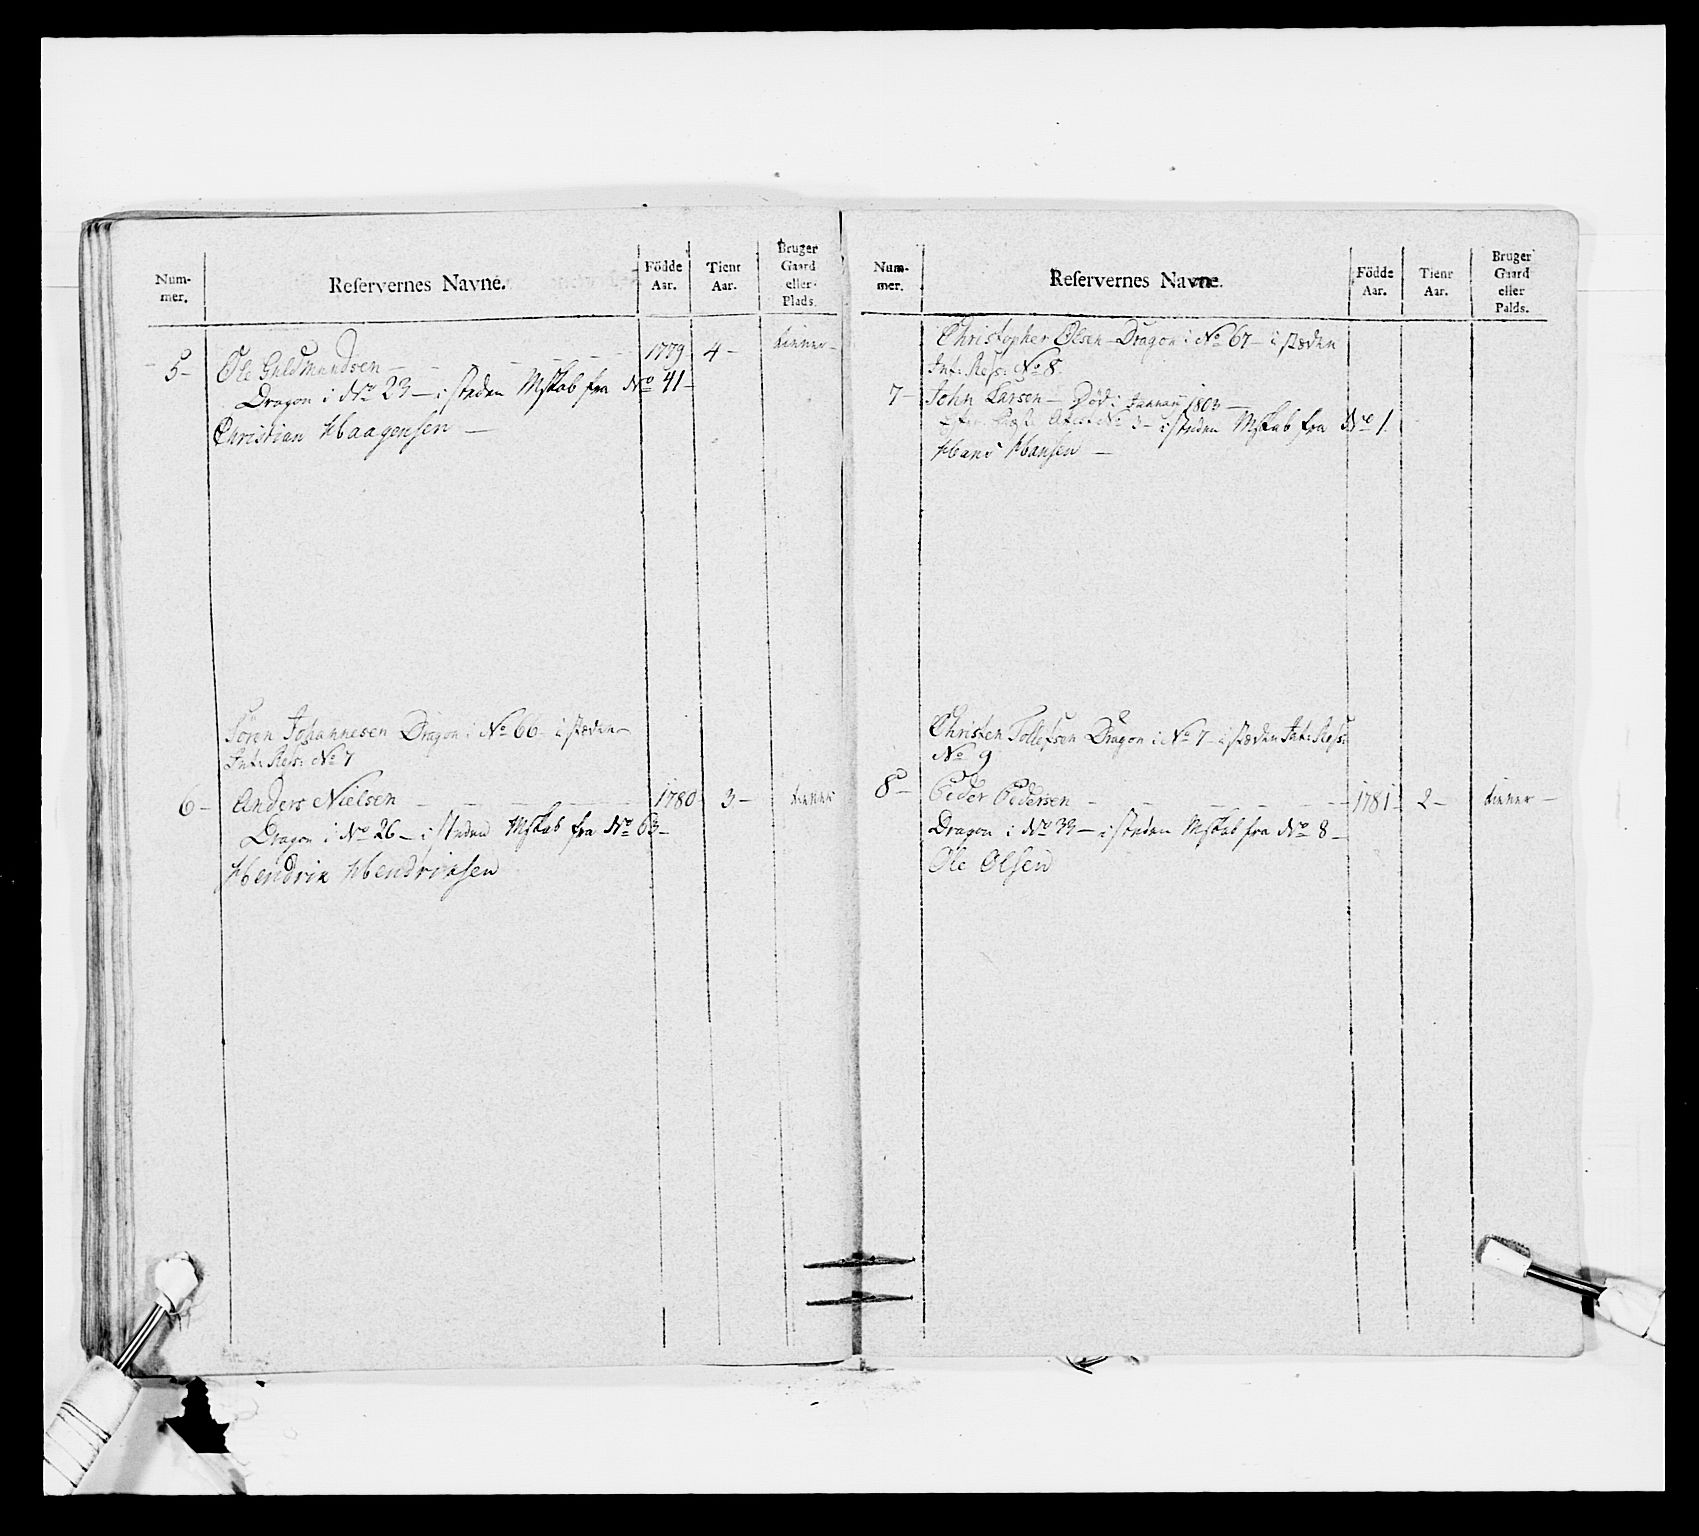 Num-
mer.
Reservernes Navne.
Födde
Aar.
Tient
Aar.
Bruger
Gaard
eller
Plads.
5-
Ole Guldmundsen -
1779
4-
tienner-
Dragon i No 23 - i steden Mskab fra No 41-
Christian Haagensen -
Sören Johannesen Dragon i No 66 - i stæden
Int: Res: No 7
6-
Anders Nielsen
1780
3-
tienner
Dragon i No 26 - i steden Mskab fra No 63-
Hendrik Hendriksen
Num-
mer.
Reservernes Navne.
Födde
Aar.
Tient
Aar.
Bruger
Gaard
eller
Palds.
Christopher Olsen - Dragon i No 67 - i stæden
Int: Res: No 8
7-
John Larsen - Död i Januarii 1803 -
No 3 - i steden Mskab fra No 1.
Hans Hansen -
Christen Tollefsen Dragon i No 7 - i stæden Int: Res:
No 9
8-
Peder Pedersen
1781-
2-
tienner -
Dragon i No 39 - i steden Mskab fra No 8 -
Ole Olsen